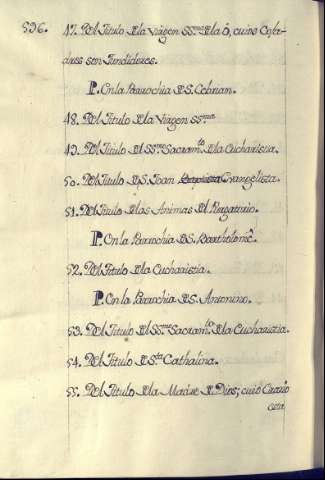 536. 47. Del Titulo de la Virgen SSma de la O, cuios Cofa-
dres son Fundidores.
P. En la Parrochia de S. Cebrian.
48. Del Titulo de la Virgen SSma
49. Del Titulo del SSmo Sacramto de la Eucharistia.
50. Del Titulo de S. Joan Baptista Evangelista.
51. Del Titulo de las Animas del Purgatorio.
P. En la Parrochia de S. Bartholome.
52. Del Titulo de la Eucharistia.
P. En la Parrochia de S. Antonino.
53. Del Titulo del SSmo Sacramto de la Eucharistia.
54. Del Titulo de Sta Cathalina.
55. Del Titulo de la Madre de Dios; cuio